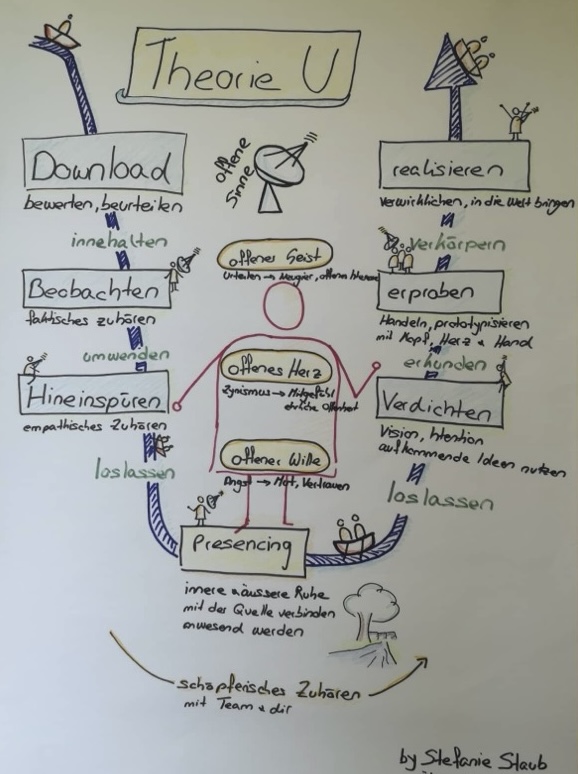 Theorie U
Download
bewerten, beurteilen
innehalten
Beobachten
faktisches zuhören
umwenden
Hineinspüren
empathisches Zuhören
loslassen
offene
Sinne
offenes Geist
Urteilen → Neugier, offenes
offenes Herz
Zynismus → Mitgefühl
ehrliche Offenheit
offener Wille
Angst → Mut, Vertrauen
Presencing
innere & äussere Ruhe
mit der Quelle verbinden
anwesend werden
realisieren
verwirklichen, in die Welt bringen
verkörpern
erproben
Handeln, prototypisieren
mit Kopf, Herz & Hand
erkunden
Verdichten
Vision, Intention
aufkommende Ideen nutzen
loslassen
schöpferisches Zuhören
mit Team & dir
by Stefanie Staub